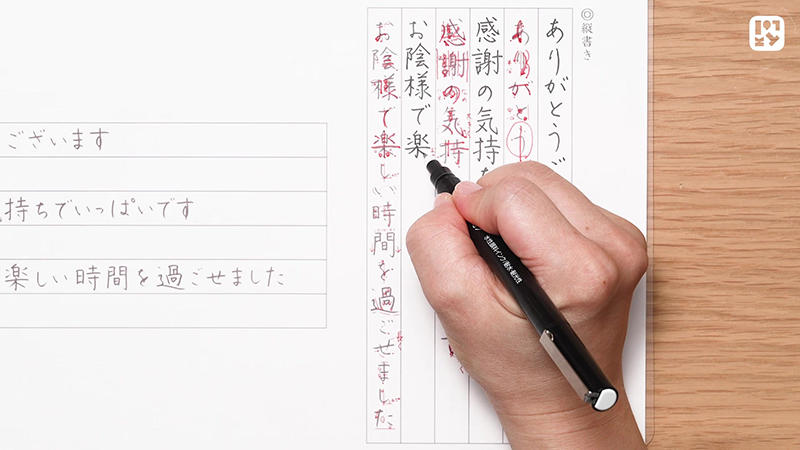 ◎縦書き
ありがとうご
ありがとう
感謝の気持ち
感謝の気持
お陰様で楽
お陰様で楽しい時間を過ごせました
ございます
持ちでいっぱいです
楽しい時間を過ごせました